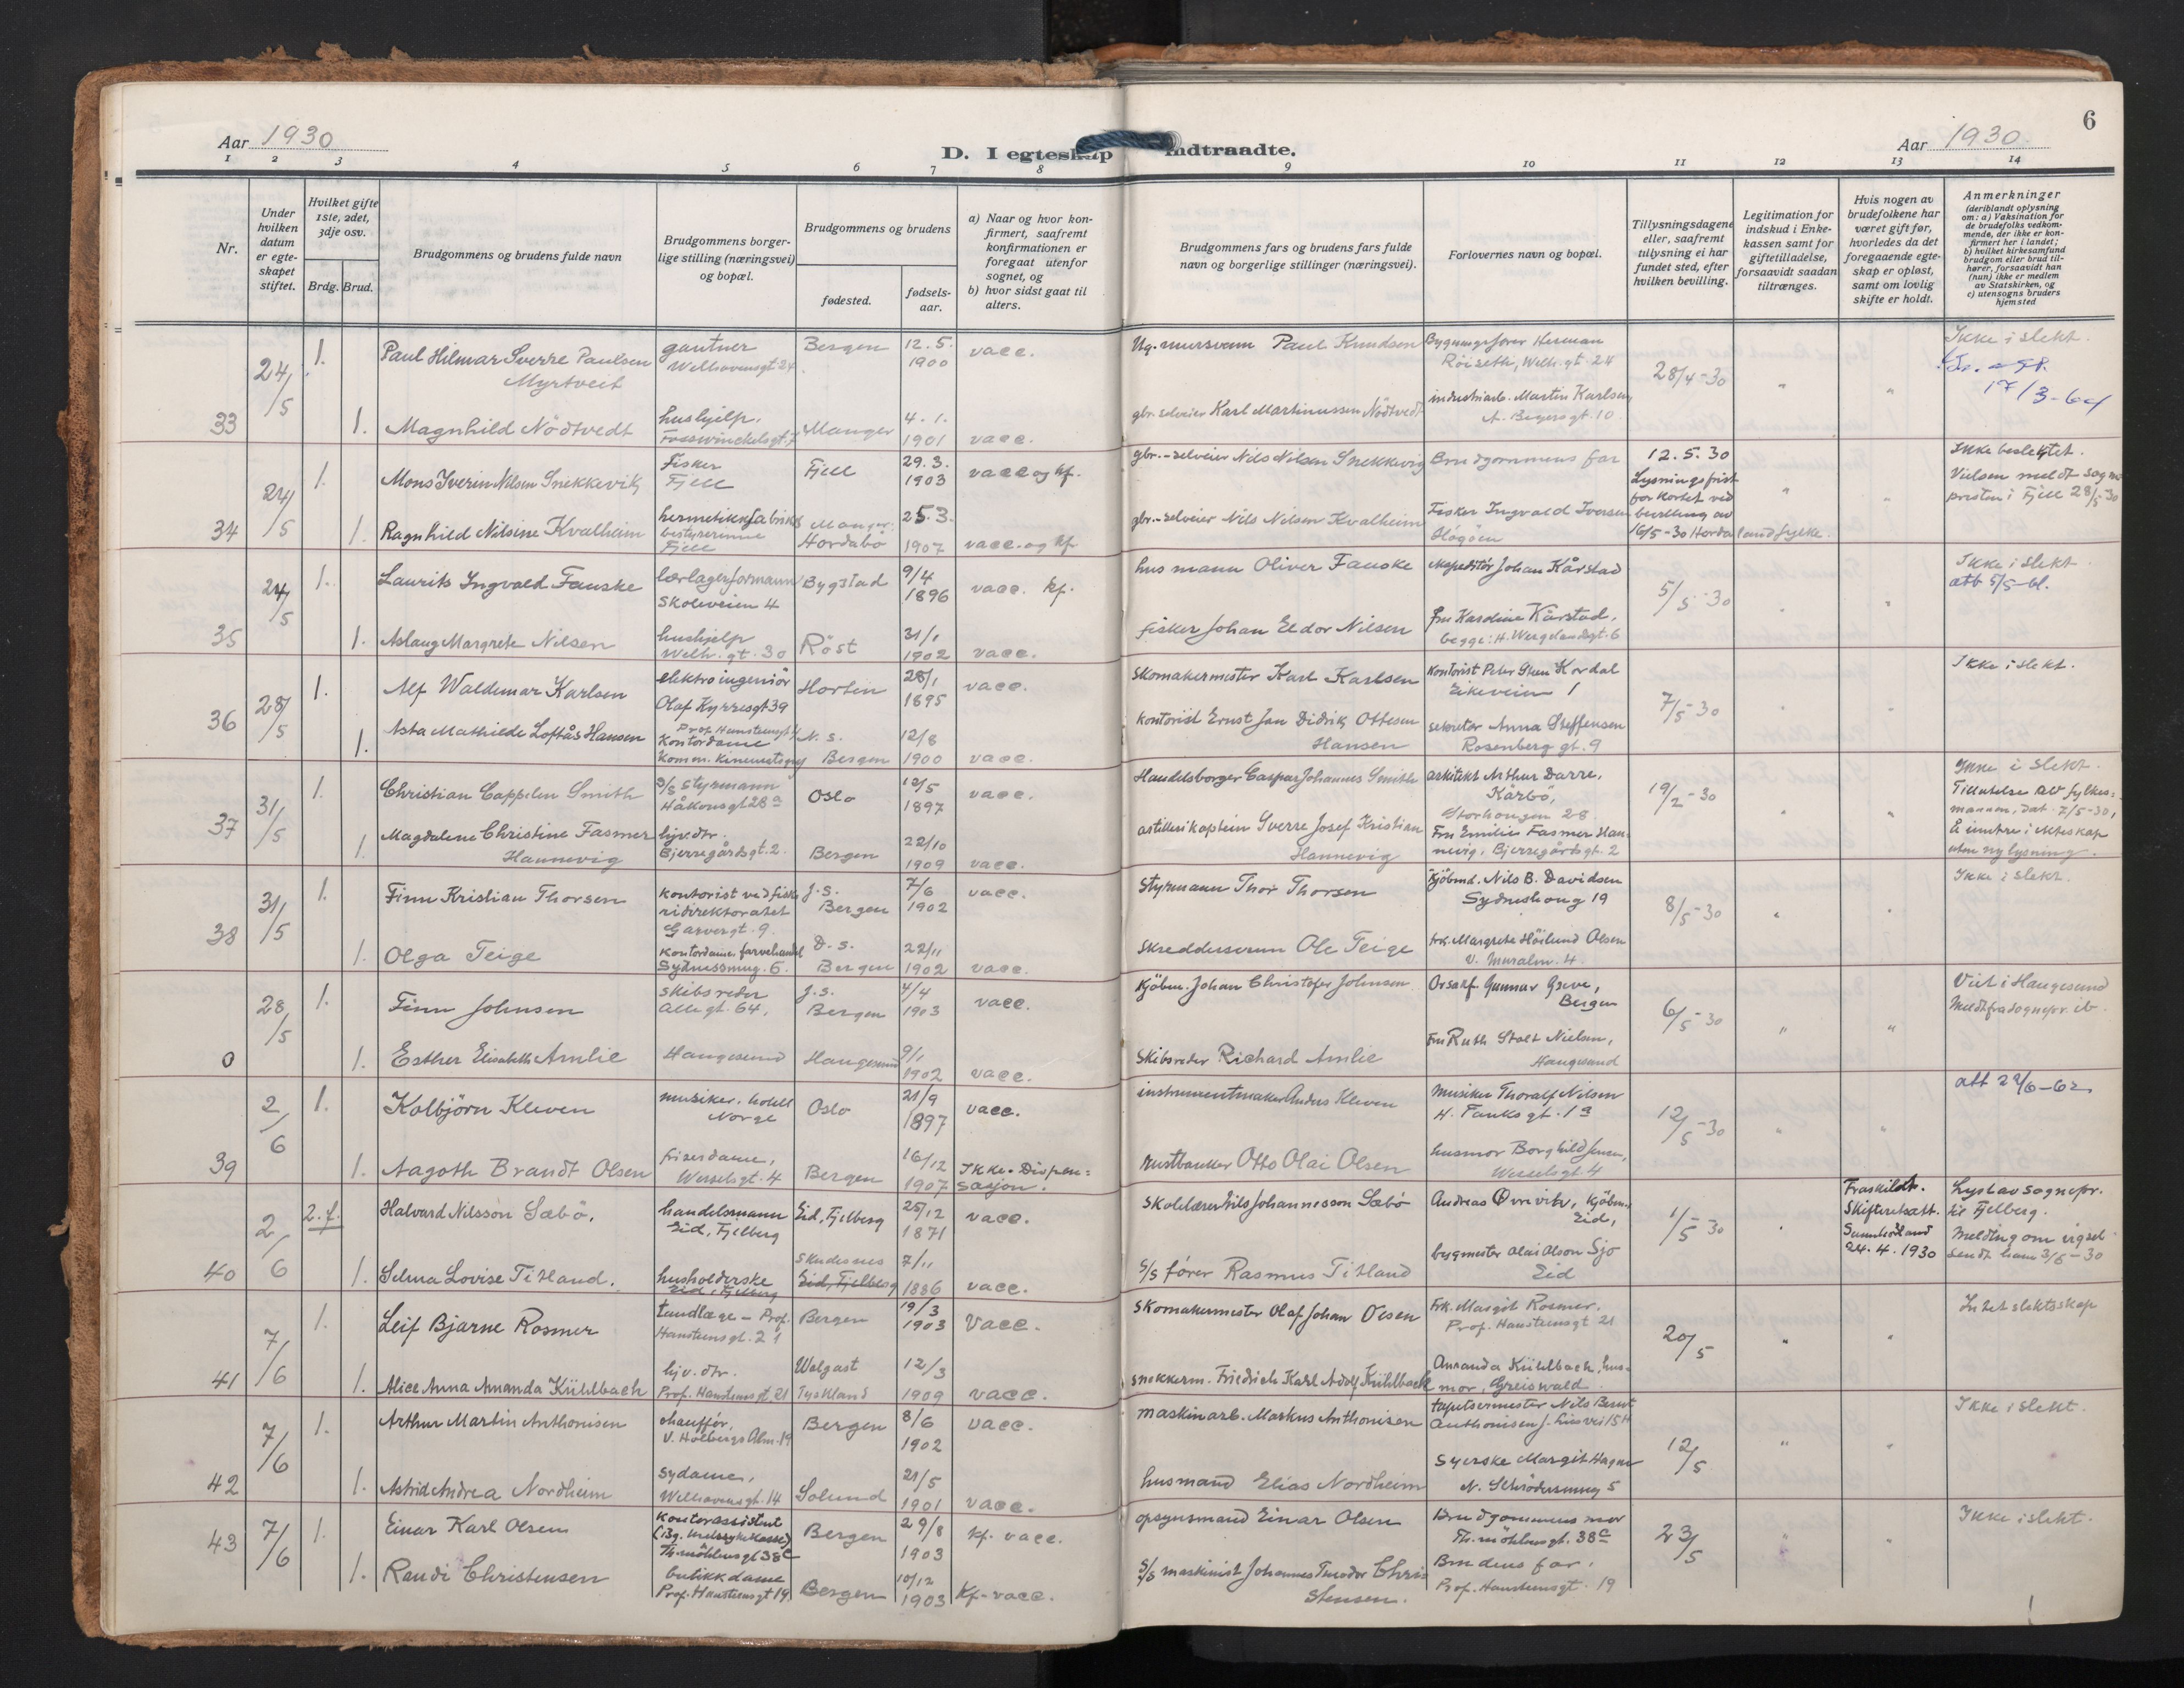 Aar 1930
D. I egteskap indtraadte.
Aar 1930
6
1 2 3 4 5 6 7 8 9 10 11 12 13 14
Nr.
Under hvilken datum er egteskapet stiftet.
Hvilket gifte 1ste, 2det, 3dje osv.
Brdg. Brud.
Brudgommens og brudens fulde navn
Brudgommens borgerlige stilling (næringsvei) og bopæl.
Brudgommens og brudens
fødested.
fødselsaar.
a) Naar og hvor konfirmert, saafremt konfirmationen er foregaat utenfor sognet, og
b) hvor sidst gaat til alters.
Brudgommens fars og brudens fars fulde navn og borgerlige stillinger (næringsvei).
Forlovernes navn og bopæl.
Tillysningsdagene eller, saafremt tillysning ei har fundet sted, efter hvilken bevilling.
Legitimation for indskud i Enkekassen samt for giftetilladelse, forsaavidt saadan tiltrænges.
Hvis nogen av brudefolkene har været gift før, hvorledes da det foregaaende egteskap er opløst, samt om lovlig skifte er holdt.
Anmerkninger
(deriblandt oplysning om: a) Vaksination for de brudefolks vedkommende, der ikke er konfirmert her i landet; b) hvilket kirkesamfund brudgom eller brud tilhører, forsaavidt han (hun) ikke er medlem av Statskirken, og c) utensogns bruders hjemsted
33 24/5 1. Paul Hilmar Sverre Paulsen Myrtveit gautner Welhavensgt 24 Bergen 12.5. 1900 vacc. Ug. mursvenn Paul Knudsen Bygningsfører Herman Röiseth, Welh. gt. 24 28/4-30 " " Ikke i slekt.
17/3-64
1. Magnhild Nödtvedt hushjelp. Fosswinckelsgt. 7 Manger 4.1. 1901 vacc. gbr. selveier Karl Martinussen Nödtvedt industriarb. Martin Karlsen, A. Beyersgt. 10
34 24/5 1. Mons Iverin Nilsen Snekkevik Fisker Fjell Fjell 29.3. 1903 vacc og kf. gbr.-selveier Nils Nilsen Snekkevig Brudgommens far 12.5.30 Lysningsfrist forkortet ved bevilling av 16/5-30 Hordaland fylke. " " Ikke beslektet.
Vielsen meldt sogneprsten i Fjell 28/5-30
1. Ragnhild Nilsine Kvalheim hermetikkfabrikk bestyrerinne Fjell Manger: Hordabö 25.3. 1907 vacc. og kf gbr.-selveier Nils Nilsen Kvalheim Fisker Ingvald Iversen Högöen
35 24/5 1. Laurits Ingvald Fauske lærlagerformann Skoleveien 4 Bygstad 9/4 1896 vacc. kf. husmann Oliver Fauske ekspeditör Johan Kårstad 5/5-30 " " Ikke i slekt.
att 5/5-61.
1. Aslaug Margrete Nilsen hushjelp Welh. gt. 30 Röst 31/1 1902 vacc. fisker Johan Eldor Nilsen fru Karoline Kårstad, begge: H. Wergelandsgt. 6
36 28/5 1. Alf Waldemar Karlsen elektroingeniör Olaf Kyrresgt 39 Horten 28/1 1895 vacc. Skomakermester Karl Karlsen kontorist Peter Steen Hordal Eikeveien 1 7/5-30 " " Ikke i slekt.
1. Asta Mathilde Loftås Hansen Kontordame Komm. Kinematogr N. s. Bergen 12/8 1900 vacc. Kontorist Ernst Jan Didrik Ottesen Hansen sekretær Anna Steffensen Rosenberg gt. 9
37 31/5 1. Christian Cappelen Smith D/S Styrmann Håkonsgt 28a Oslo 12/5 1897 vacc. Handelsborger Caspar Johannes Smith arkitekt Arthur Darre, Kårbö, Storhaugen 28 19/2-30 " " Ikke i slekt.
Tillatelse av fylkesmannen, dat. 7/5-30, å inntre i ekteskap uten ny lysning.
1. Magdalene Christine Fasmer Hannevig hjv. dtr. Bjerregårdsgt. 2. Bergen 22/10 1909 vacc. artillerikaptein Sverre Josef Kristian Hannevig Fru Emilie Fasmer Hannevig, Bjerregårdsgt. 2
38 31/5 1. Finn Kristian Thorsen kontorist ved fiskeridirektoratet Garvergt. 9. J.s. Bergen 7/6 1902 vacc. Styrmann Thor Thorsen Kjöbmd. Nils B. Davidsen Sydneshaug 19 8/5-30 " " Ikke i slekt.
1. Olga Teige kontordame, farvehandel Sydnessmug. 6. D.s. Bergen 22/11 1902 vacc. Skreddersvenn Ole Teige frk. Margrete Höilund Olsen V. Muralm. 4.
0 28/5 1. Finn Johnsen Skibsreder Allegt. 64, J.s. Bergen 4/4 1903 vacc. Kjöbm. Johan Christofer Johnsen Orsakf. Gunnar Greve, Bergen 6/5-30 " " Viet i Haugesund
Meldt fra sognepr. ib.
1. Esther Elisabeth Amlie Haugesund Haugesund 9/1 1902 vacc. Skibsreder Richard Amlie Fru Ruth Stolt Nielsen, Haugesund
39 2/6 1. Kolbjörn Kleven musiker. hotell Norge Oslo 21/9 1897 vacc. instrumentmaker Anders Kleven Musiker Thoralf Nilsen H. Tanksgt. 1a 12/5-30 " " att 29/6-62
1. Aagoth Brandt Olsen friserdame, Wesselsgt. 4 Bergen 16/12 1907 Ikke. Dispensasjon. rustbanker Otto Olai Olsen husmor Borghild Jensen, Wesselsgt. 4
40 2/6 2. f. Halvard Nilsson Sæbö. handelsmann Eid, Fjelberg Eid, Fjelberg 25/12 1871 vacc. Skolelærer Nils Johannesson Sæbö Andreas Övrevik, Kjöbm. Eid, 1/5-30 " Fraskilt. Skifteretsatt. Sunnhordland 24.4.1930 Lyst av sognepr. til Fjelberg.
Melding om vigsel sendt ham 3/6-30
1. Selma Lovise Titland. husholderske Eid, Fjelberg Skudesnes Eid, Fjelberg 7/11 1886 vacc. S/S förer Rasmus Titland bygmester Olai Olson Sjo Eid
41 7/6 1. Leif Bjarne Rosmer tandlæge - Prof. Hansteensgt. 21 Bergen 19/3 1903 vacc. Skomakermester Olaf Johan Olsen Frk. Margit Rosmer. Prof. Hansteensgt 21 20/5 " " Intet slektsskap
1. Alice Anna Amanda Kühlbach hjv. dtr. Prof. Hansteensgt. 21 Wolgast Tyskland 12/3 1909 vacc. snekkerm. Friedrich Karl Adolf Kühlbach Amanda Kühlbach, husmor, Greiswald
42 7/6 1. Arthur Martin Anthonisen chaufför. V. Holbergs Alm. 19 Bergen 8/6 1902 vacc. maskinarb. Markus Anthonisen tapetsermester Nils Bernt Anthonisen 12/5 " " Ikke i slekt.
1. Astrid Andrea Nordheim Sydame, Welhavensgt. 14 Solund 21/5 1901 vacc. husmand Elias Nordheim Syerske Margit Hagen N. Schrödersmug 5
43 7/6 1. Einar Karl Olsen Kontorassistent Th. möhlensgt 38c Bergen 29/8 1903 kf. vacc. opsynsmand Einar Olsen Brudgommens mor Th. möhlensgt. 38c 23/5 " " Ikke i slekt.
1. Randi Christensen butikkdame Prof. Hansteensgt 19 Bergen 10/12 1903 kf-vacc. S/S maskinist Johannes Theodor Christensen. Brudens far. Prof. Hansteensgt. 19